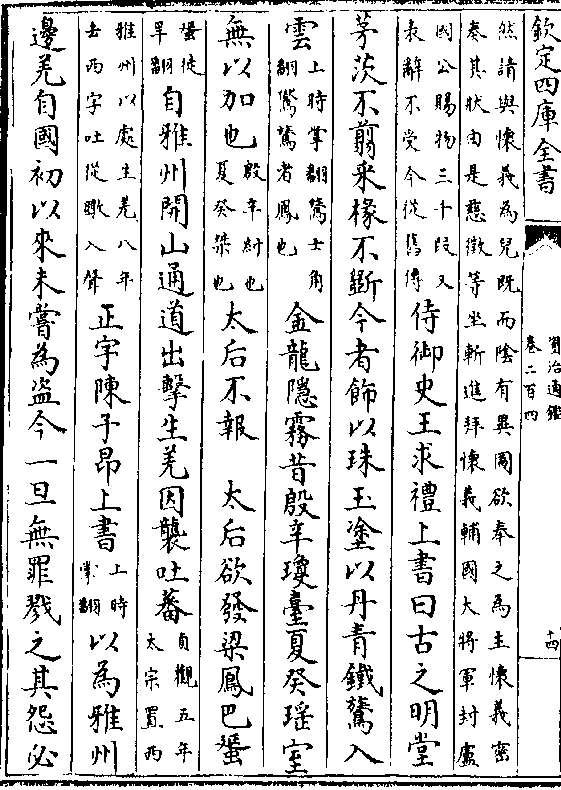 欽定四庫全書
資治通鑑
卷二百四
十四
然請與懷義為兒既而陰有異圖欲奉之為主懷義密
奏其狀由是慈徵等坐斬進拜懷義輔國大將軍封盧
國公賜物三千段又
表辭不受今從舊傳
侍御史王求禮上書曰古之明堂
茅茨不翦采椽不斲今者飾以珠玉塗以丹青鐵鷟入
雲
上時掌翻鷟士角
翻鸑鷟者鳳也
金龍隱霧昔殷辛瓊臺夏癸瑶室
無以加也
殷辛紂也
夏癸桀也
太后不報 太后欲發梁鳳巴蜑
蜑徒
旱翻
自雅州開山通道出擊生羌因襲吐蕃
貞觀五年
太宗置西
雅州以處生羌八年
去西字吐從暾入聲
正字陳子昂上書
上時
掌翻
以為雅州
邊羌自國初以來未嘗為盜今一旦無罪戮之其怨必